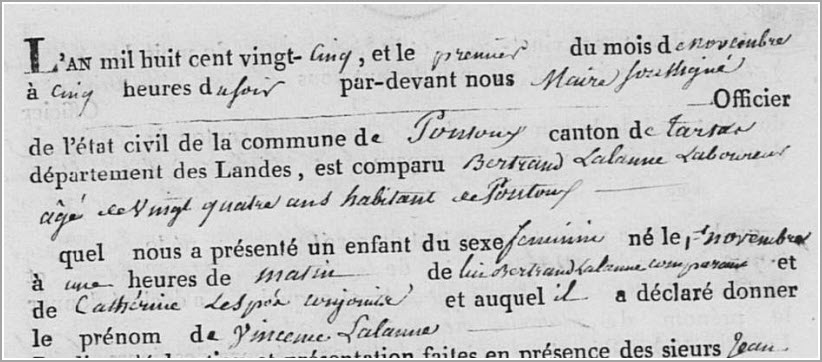 L'AN mil huit cent vingt-Cinq, et le premier du mois de novembre
à Cinq heures du soir par-devant nous Maire soussigné
Officier
de l'état civil de la commune de Pontonx canton de tartas
département des Landes, est comparu Bertrand Lalanne Laboureur
âgé de Vingt quatre ans habitant de Pontonx
quel nous a présenté un enfant du sexe feminin né le 1er novembre
à une heures de matin de lui Bertrand Lalanne comparant et
de Catherine Lespés conjointe et auquel il a déclaré donner
le prénom de Vincente Lalanne
présentation faites en présence des sieurs Jean